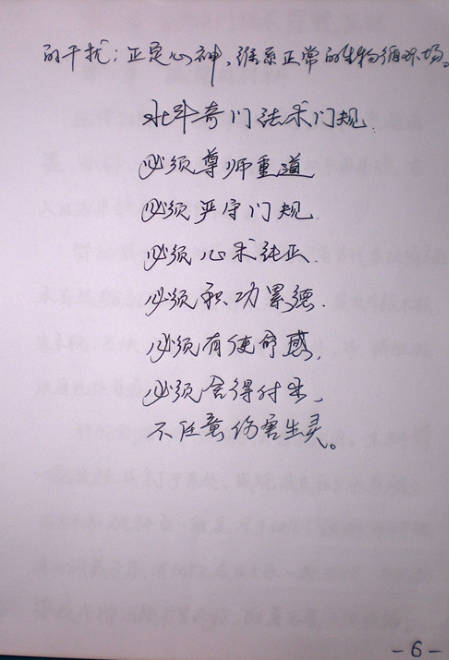 的干扰；正定心神，维系正常的生物循环场。
北斗奇门法术门规
必须尊师重道
必须严守门规.
必须心术纯正.
必须积功累德.
必须有使命感,
必须舍得付出,
不任意伤害生灵。
-6-